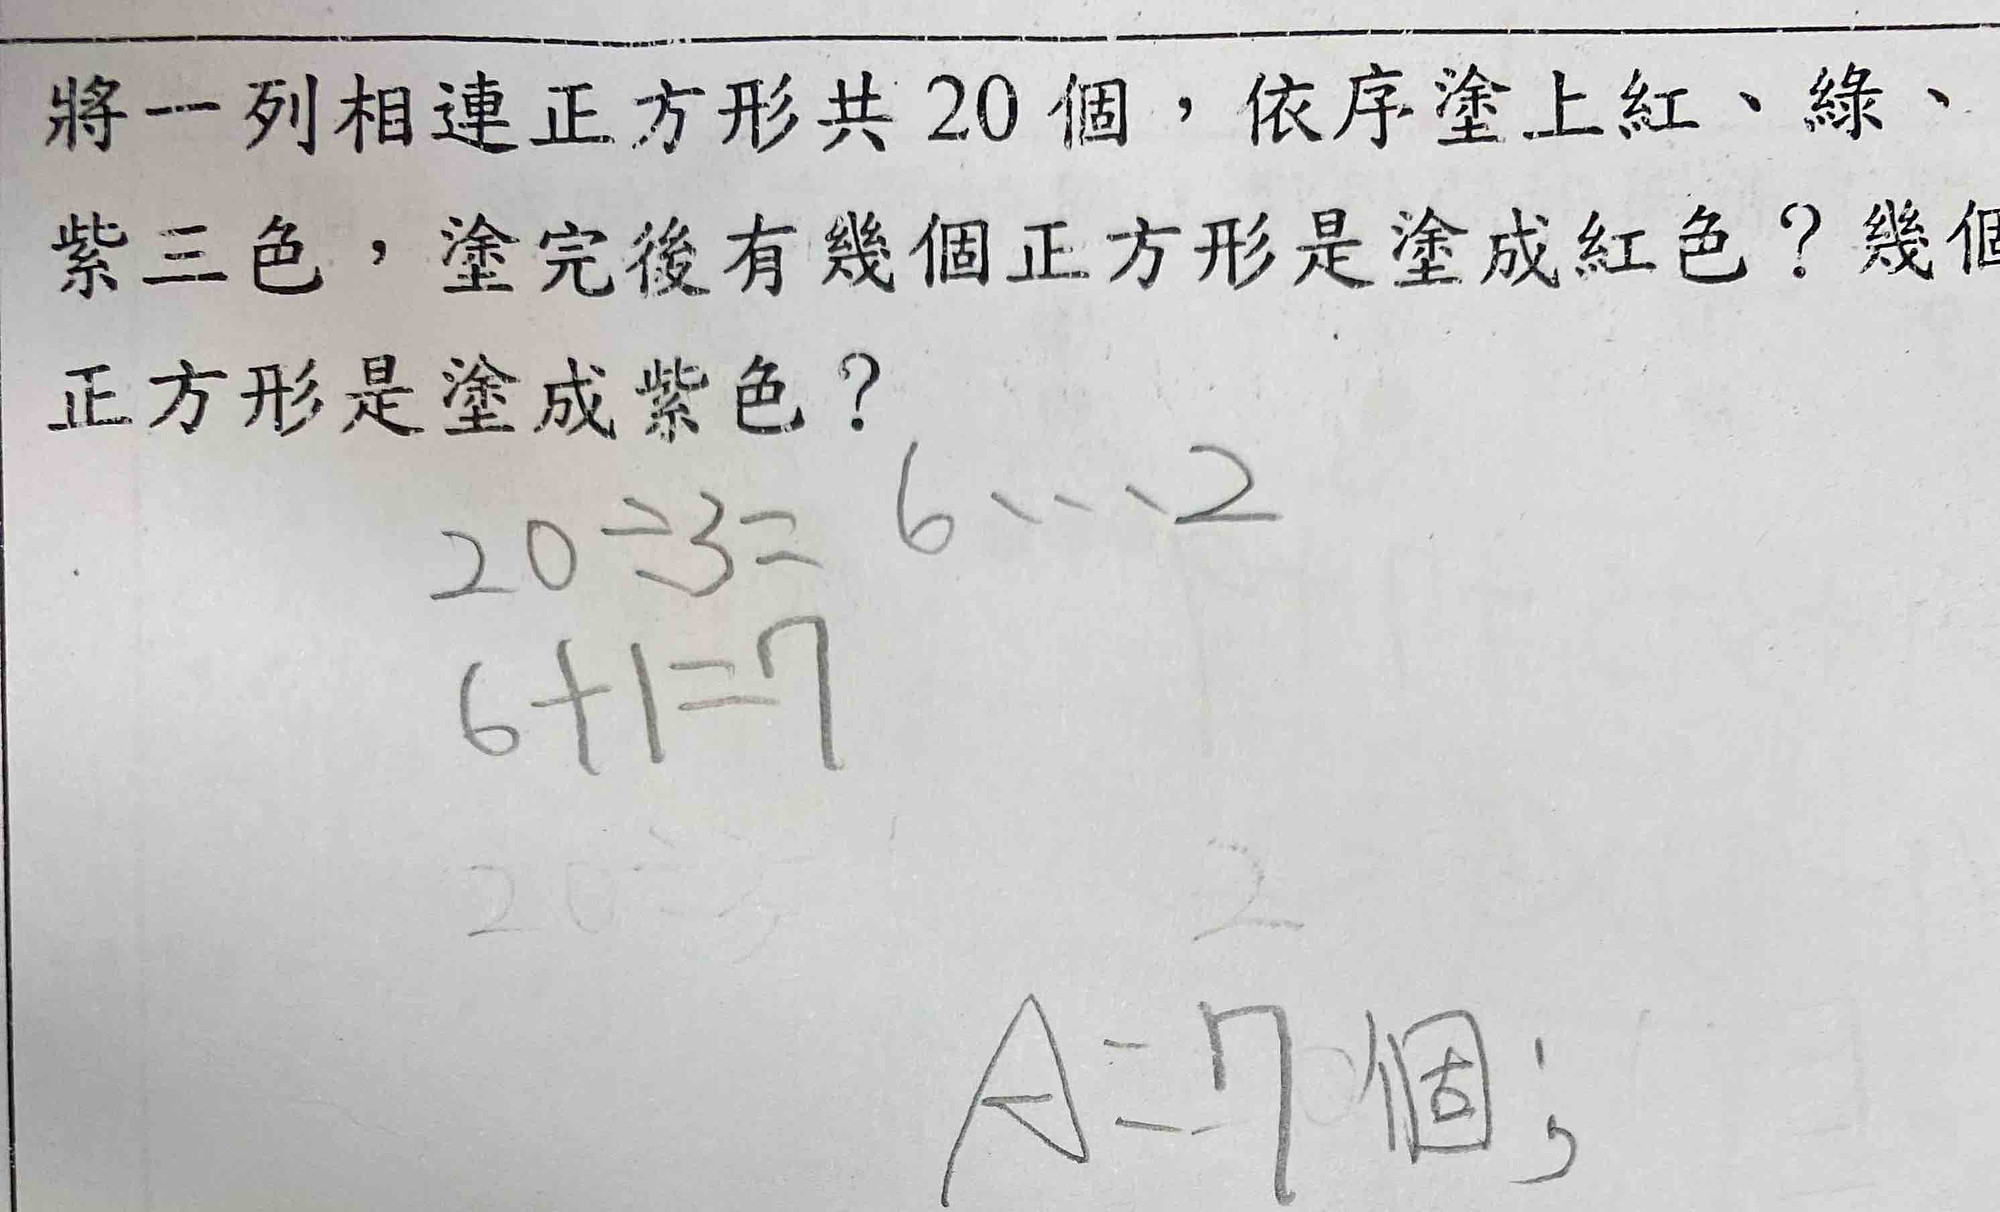 將一列相連正方形共 20 個，依序塗上紅、綠、
紫三色，塗完後有幾個正方形是塗成紅色？幾個
正方形是塗成紫色？
20÷3=6…2
6+1=7
20÷3 2
A=7個；